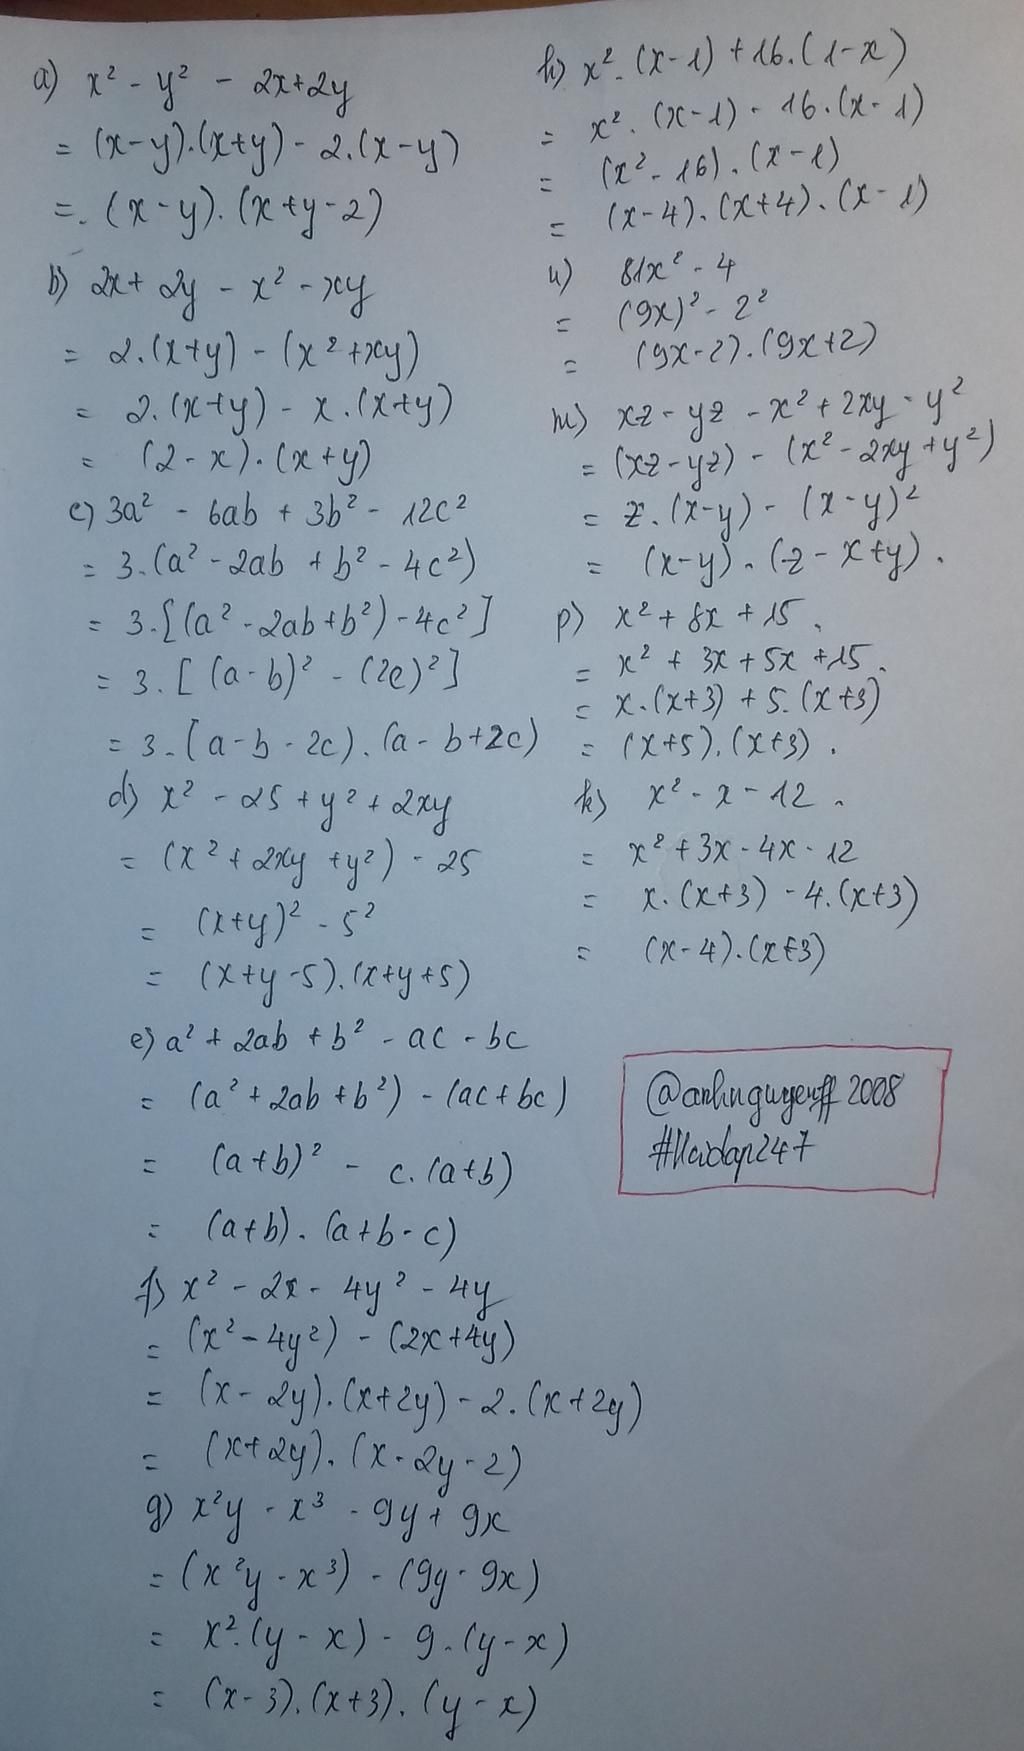 a) x² - y² - 2x+2y
= (x-y).(x+y) - 2.(x-y)
=. (x-y). (x+y-2)
b) 2x+ 2y - x² - xy
= 2.(x+y) - (x²+xy)
= 2.(x+y) - x.(x+y)
= (2-x).(x+y)
c) 3a² - 6ab + 3b² - 12c²
= 3.(a² - 2ab + b² - 4c²)
= 3.[(a² - 2ab+b²) - 4c²]
= 3. [ (a-b)² - (2c)²]
= 3. [a-b-2c).(a-b+2c)
d) x² - 25 + y² + 2xy
= (x² + 2xy + y²) - 25
= (x+y)² - 5²
= (x+y-5).(x+y+5)
e) a² + 2ab + b² - ac - bc
= (a² + 2ab + b²) - (ac + bc)
= (a+b)² - c.(a+b)
= (a+b). (a+b-c)
f) x² - 2x - 4y² - 4y
= (x² - 4y²) - (2x+4y)
= (x-2y).(x+2y) - 2.(x+2y)
= (x+2y). (x-2y-2)
g) x²y - x³ - 9y + 9x
= (x²y - x³) - (9y - 9x)
= x².(y-x) - 9.(y-x)
= (x-3).(x+3).(y-x)
h) x². (x-1) + 16.(1-x)
= x². (x-1) - 16.(x-1)
= (x² - 16).(x-1)
= (x-4).(x+4).(x-1)
n) 81x² - 4
= (9x)² - 2²
= (9x-2).(9x+2)
m) xz - yz - x² + 2xy - y²
= (xz-yz) - (x² - 2xy + y²)
= z.(x-y) - (x-y)²
= (x-y). (z-x+y).
p) x² + 8x + 15.
= x² + 3x + 5x + 15.
= x.(x+3) + 5.(x+3)
= (x+5).(x+3).
k) x² - x - 12.
= x² + 3x - 4x - 12
= x.(x+3) - 4.(x+3)
= (x-4).(x+3)
@anhnguyenff 2008
#Hoidap247